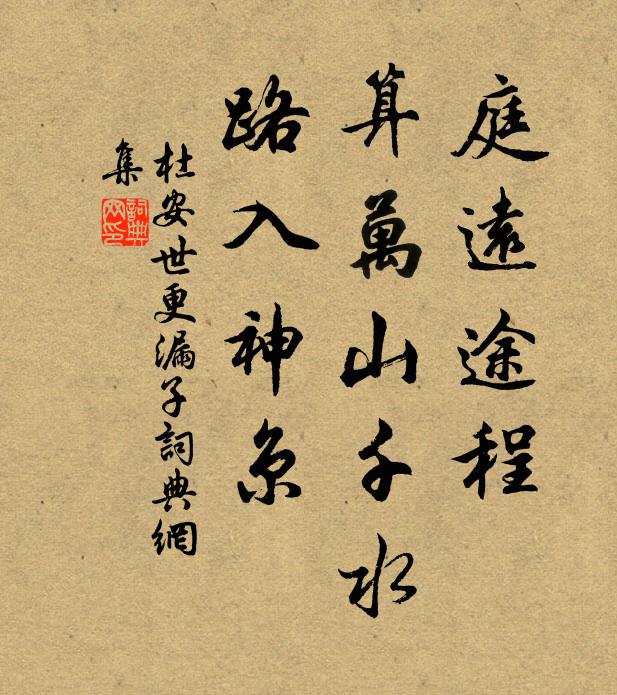 庭遠途程
算萬山千水
路入神京
杜安世更漏子詞典網
集
詞典
网印